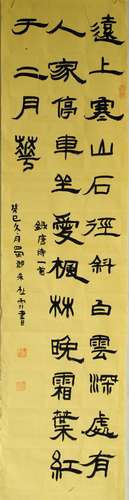 遠上寒山石徑斜白雲深處有
人家停車坐愛楓林晚霜葉紅
于二月華
錄唐詩一首
癸巳冬月